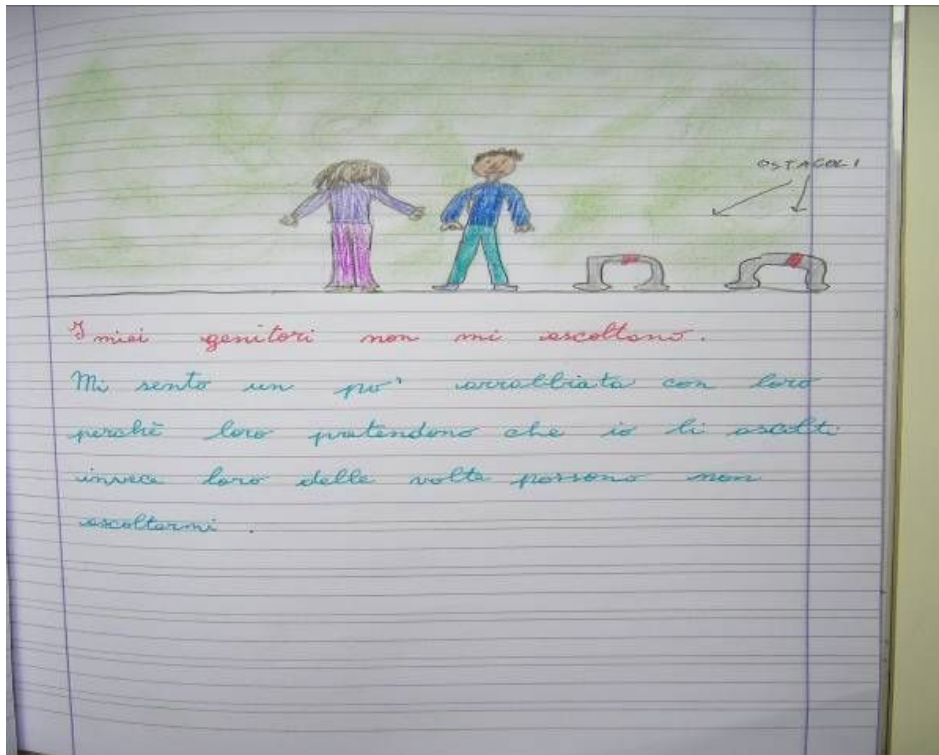 OSTACOLI
I miei genitori non mi ascoltano.
Mi sento un po' arrabbiata con loro
perchè loro pretendono che io li ascolti
invece loro delle volte possono non
ascoltarmi.